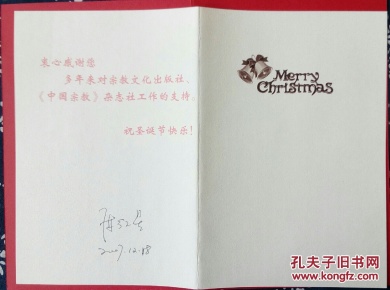 衷心感谢您
多年来对宗教文化出版社、
《中国宗教》杂志社工作的支持。
祝圣诞节快乐！
2007.12.18
Merry
Christmas
孔夫子旧书网
www.kongfz.com